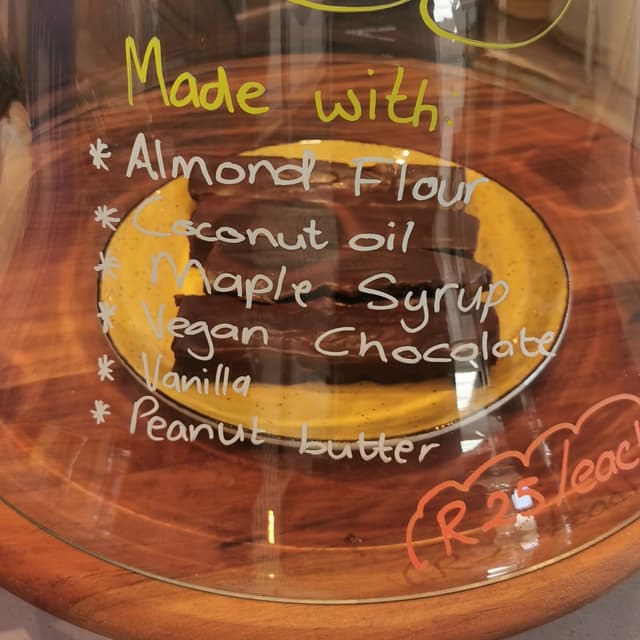 Made with:
* Almond Flour
* Coconut oil
* Maple Syrup
* Vegan Chocolate
* Vanilla
* Peanut butter
R25/each